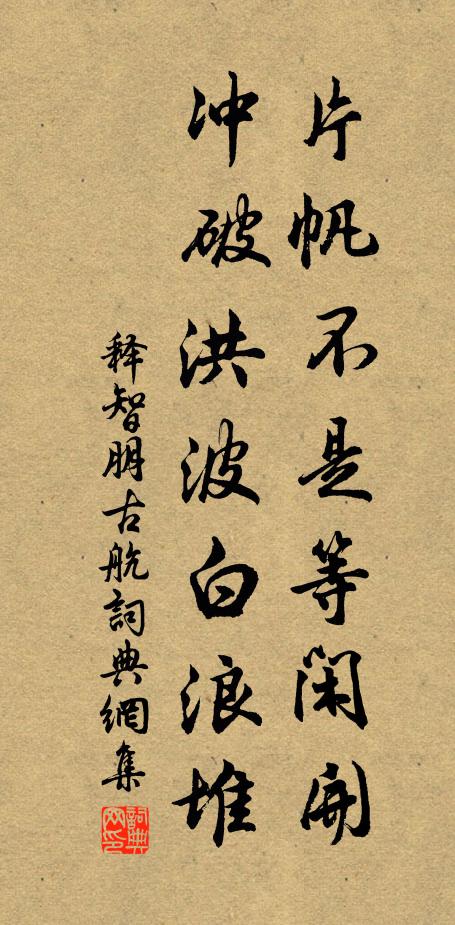 片帆不是等闲開
冲破洪波白浪堆
释智朋古航詞典網集
詞典網印